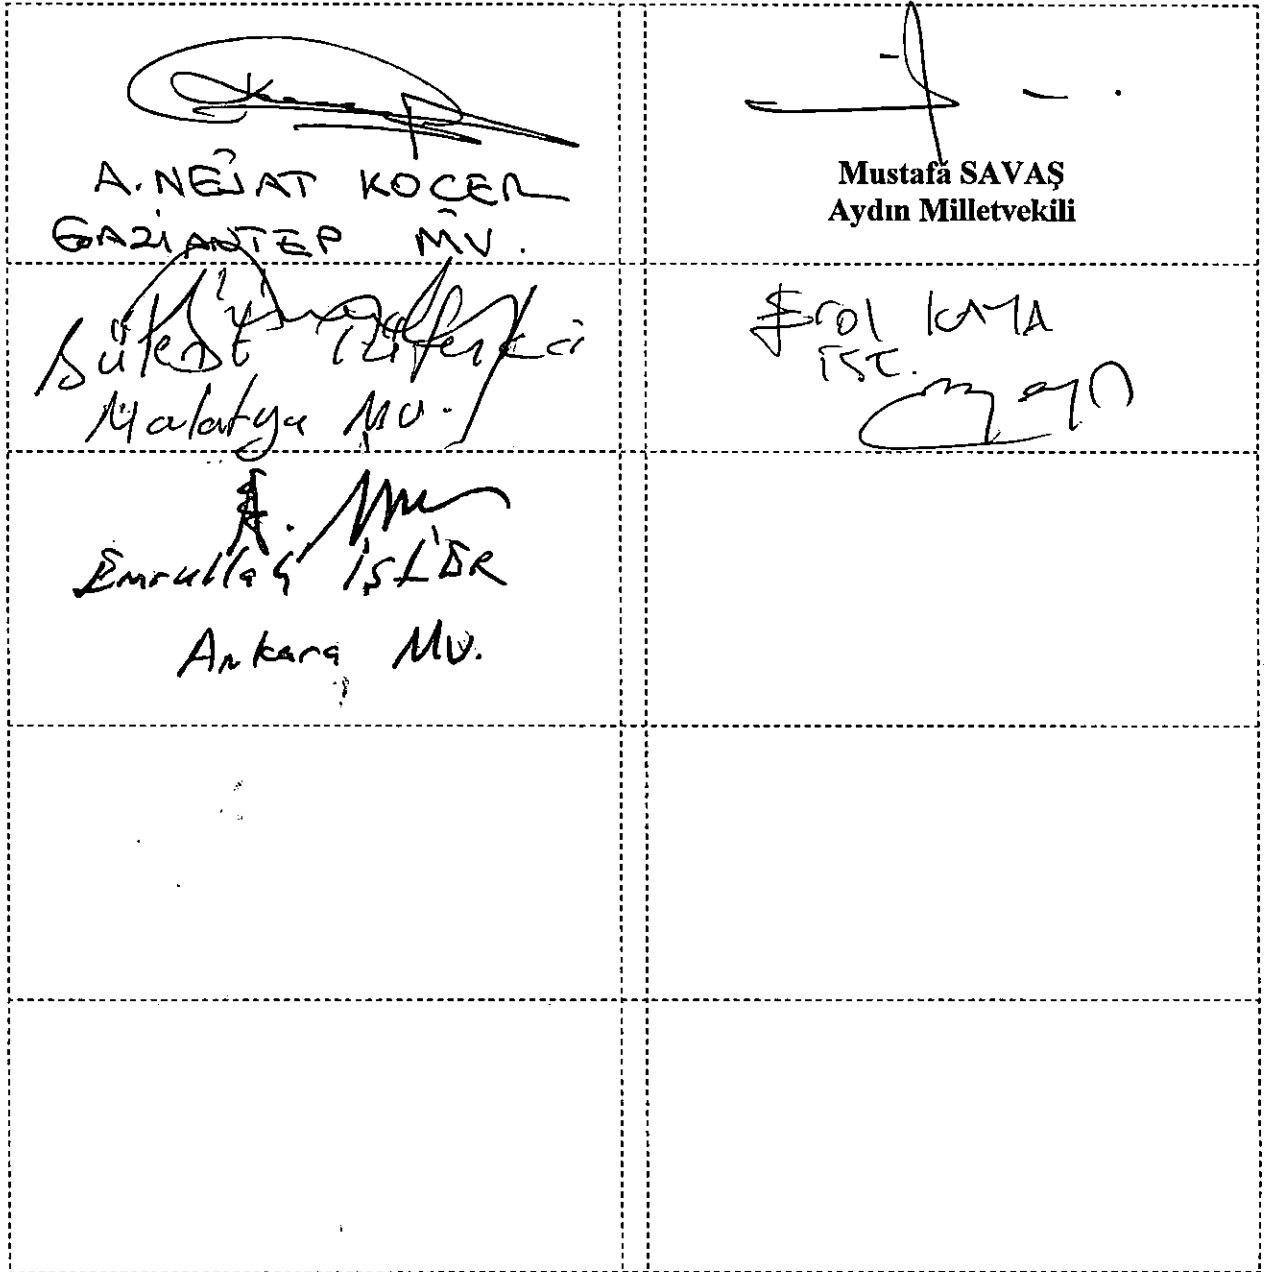 A. NEJAT KOÇER
GAZİANTEP MV.
Mustafa SAVAŞ
Aydın Milletvekili
Bülent Tüfenkci
Malatya MV.
Erol KAYA
İST.
Emrullah İŞLER
Ankara MV.